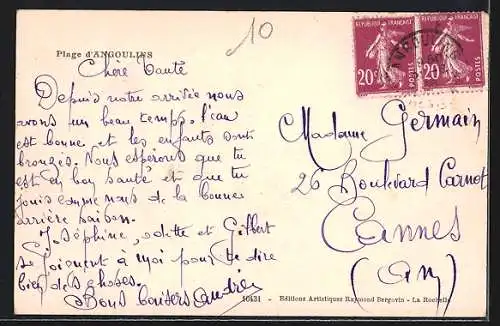 10
Plage d'ANGOULINS
Chère Tante
Depuis notre arrivée nous
avons un beau temps. l'eau
est bonne et les enfants sont
bronzés. Nous espérons que tu
est en bon santé et que tu
jouis comme nous de la bonne
arrière saison.
Joséphine, odette et Gilbert
se joignent à moi pour te dire
bien des choses.
Bons baisers André
REPUBLIQUE FRANÇAISE
20c
POSTES
REPUBLIQUE FRANÇAISE
20c
POSTES
Madame Germain
26 Boulevard Carnot
Cannes
(AM)
10431 - Editions Artistiques Raymond Bergevin - La Rochelle